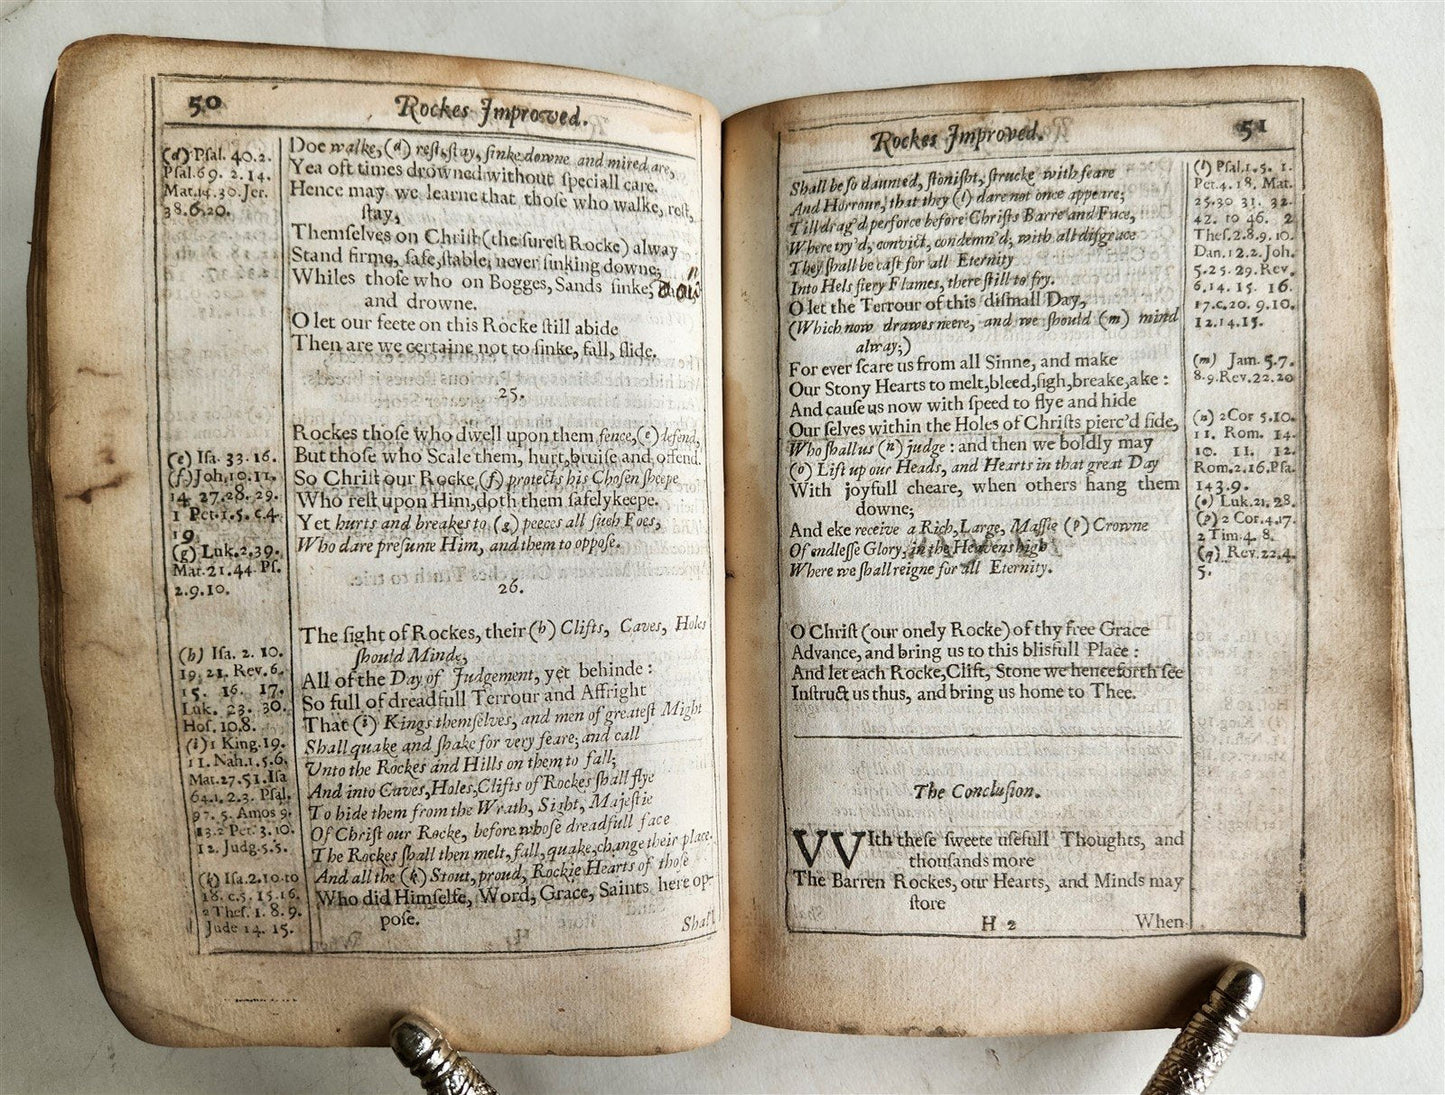 50
Rockes Improved.
(d) Psal. 40.2.
Psal.69. 2.14.
Mat.14.30. Jer.
38.6.20.
Doe walke,(d) rest,stay, sinke downe and mired are,
Yea oft times drowned without speciall care.
Hence may we learne that those who walke, rest,
stay,
Themselves on Christ (the surest Rocke) alway
Stand firme, safe,stable, never sinking downe;
Whiles those who on Bogges, Sands sinke,
and drowne.
O let our feete on this Rocke still abide
Then are we certaine not to sinke, fall, slide.
25.
(e) Isa. 33.16.
(f) Joh. 10.11.
14. 27.28. 29.
1 Pet.1.5. c.4.
19.
(g) Luk.2.39.
Mat.21.44. Ps.
2.9.10.
Rockes those who dwell upon them fence,(e) defend,
But those who Scale them, hurt,bruise and offend.
So Christ our Rocke,(f) protects his Chosen sheepe
Who rest upon Him,doth them safely keepe.
Yet hurts and breakes to (g) peeces all such Foes,
Who dare presume Him, and them to oppose.
26.
(h) Isa. 2. 10.
19. 21. Rev.6.
15. 16. 17.
Luk. 23. 30.
Hos. 10.8.
(i) 1 King.19.
11. Nah.1.5.6.
Mat.27.51.Isa
64.1.2.3. Psal.
97. 5. Amos 9.
13.2 Pet. 3.10.
12. Judg.5.5.
(k) Isa.2.10.to
18. c.5.15.16.
2 Thes. 1. 8.9.
Jude 14. 15.
The sight of Rockes, their (h) Clifts, Caves, Holes
should Minde,
All of the Day of Judgement, yet behinde :
So full of dreadfull Terrour and Affright
That (i) Kings themselves, and men of greatest Might
Shall quake and shake for very feare; and call
Unto the Rockes and Hills on them to fall;
And into Caves,Holes,Clifts of Rockes shall flye
To hide them from the Wrath, Sight, Majestie
Of Christ our Rocke, before whose dreadfull face
The Rockes shall then melt, fall, quake,change their place.
And all the (k) Stout, proud, Rockie Hearts of those
Who did Himselfe, Word, Grace, Saints here op-
pose.
Shall
Rockes Improved.
51
Shall be so daunted, stonisht, strucke with feare
And Horrour, that they (l) dare not once appeare;
Till drag'd perforce before Christs Barre and Face,
Where try'd, convict, condemn'd, with all disgrace
They shall be cast for all Eternity
Into Hels fiery Flames, there still to fry.
O let the Terrour of this dismall Day,
(Which now drawes neere, and we should (m) mind
alway;)
For ever scare us from all Sinne, and make
Our Stony Hearts to melt,bleed,sigh,breake,ake :
And cause us now with speed to flye and hide
Our selves within the Holes of Christs pierc'd side,
Who shall us (n) judge : and then we boldly may
(o) Lift up our Heads, and Hearts in that great Day
With joyfull cheare, when others hang them
downe;
And eke receive a Rich, Large, Massie (p) Crowne
Of endlesse Glory, in the Heavens high
Where we shall reigne for all Eternity.
O Christ (our onely Rocke) of thy free Grace
Advance, and bring us to this blisfull Place :
And let each Rocke,Clift, Stone we henceforth see
Instruct us thus, and bring us home to Thee.
(l) Psal.1.5. 1.
Pet.4.18. Mat.
25.30 31. 32.
42. to 46. 2
Thes.2.8.9.10.
Dan.12.2. Joh.
5.25.29. Rev.
6.14. 15. 16.
17.c.20. 9.10.
12.14.15.
(m) Jam. 5.7.
8.9.Rev.22.20
(n) 2Cor 5.10.
11. Rom. 14.
10. 11. 12.
Rom.2.16.Psa.
143.9.
(o) Luk.21.28.
(p) 2 Cor.4.17.
2 Tim.4. 8.
(q) Rev.22.4.
5.
The Conclusion.
VVIth these sweete usefull Thoughts, and
thousands more
The Barren Rockes, our Hearts, and Minds may
store
H 2
When